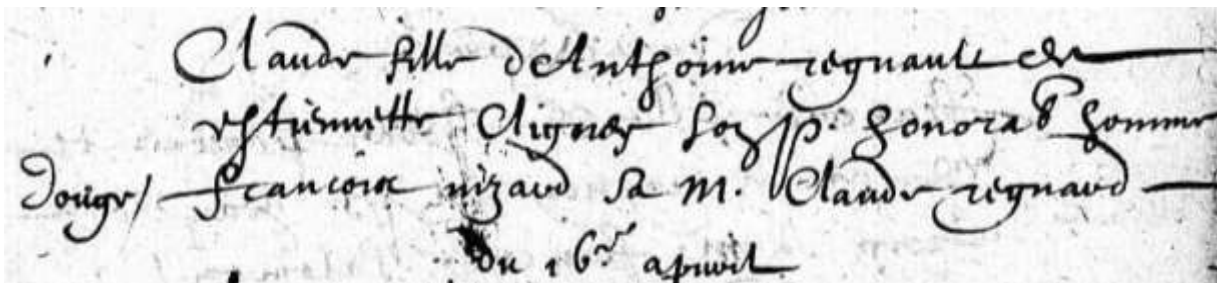 Claude fille d'Anthoine regnault et
estiennette Cligney son p. honorab homme
Douge / francois nizard sa m. Claude regnard
Du 16e apvril